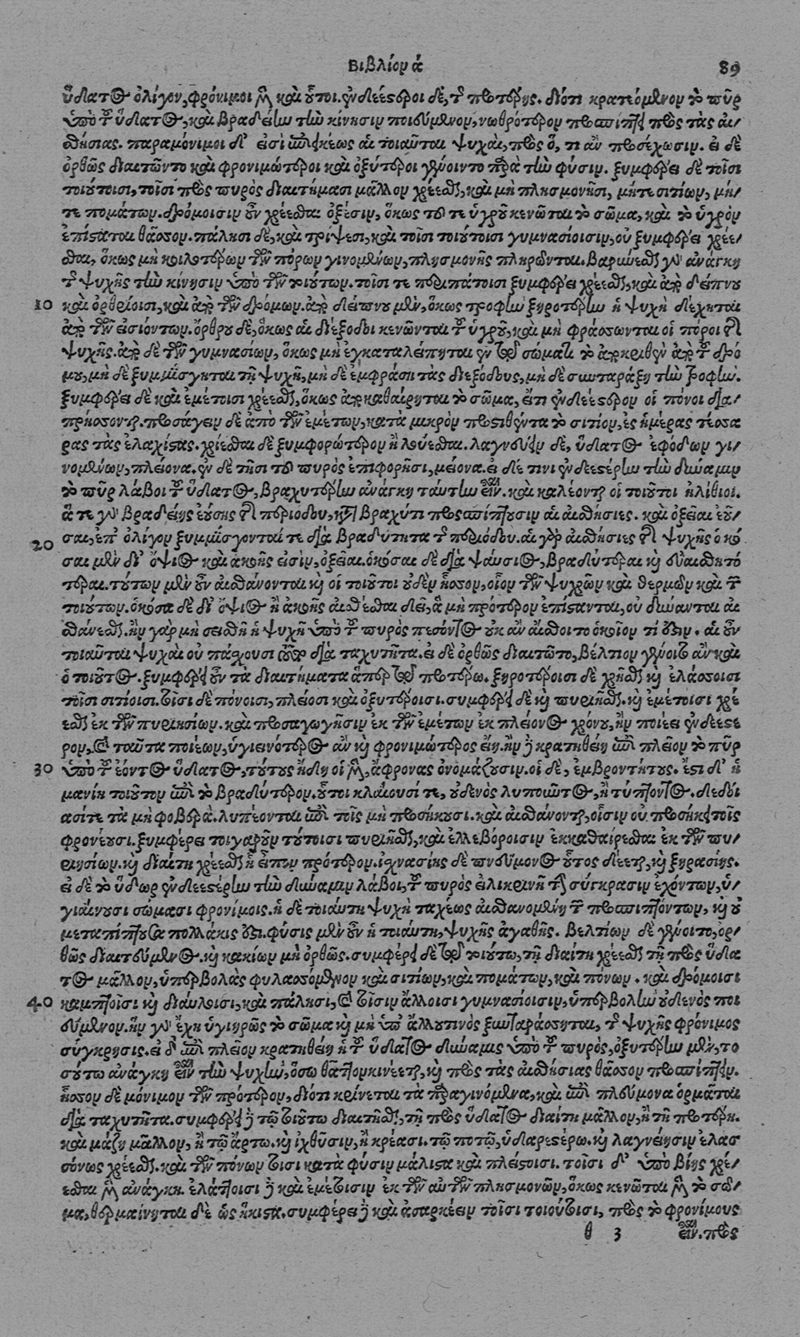 Βιβλίον ά 89
ὕδατος ὀλίγον, φρόνιμοι μὲν καὶ οὗτοι. ἐνδεέστεροι δὲ, τῆς προτέρης. διότι κρατεόμενον τὸ πῦρ
ὑπὸ τοῦ ὕδατος, καὶ βραδεῖαν τὴν κίνησιν ποιεύμενον, νωθρότερον προσπίπτει πρὸς τὰς αἰ-
σθήσιας. παραμόνιμοι δ' εἰσὶ ἐπιεικέως αἱ τοιαῦται ψυχαὶ, πρὸς ὅ, τι ἂν προσέχωσιν. εἰ δὲ
ὀρθῶς διαιτῶντο καὶ φρονιμώτεροι καὶ ὀξύτεροι γένοιντο παρὰ τὴν φύσιν. ξυμφέρει δὲ τοῖσι
τοιούτοισι, τοῖσι πρὸς πυρὸς διαιτήμασι μᾶλλον χρέεσθαι, καὶ μὴ πλησμονῇσι, μήτε σιτίων, μή-
τε πομάτων. δρόμοισιν οὖν χρέεσθαι ὀξέσιν, ὅκως τοῦ τε ὑγροῦ κενῶται τὸ σῶμα, καὶ τὸ ὑγρὸν
ἐπίσταται θᾶσσον. πάλησι δὲ, καὶ τρίψεσι, καὶ τοῖσι τοιούτοισι γυμνασίοισιν, οὐ ξυμφέρει χρέε-
σθαι, ὅκως μὴ κοιλοτέρων τῶν πόρων γινομένων, πλησμονῆς πληρῶνται. βαρύνεσθαι γὰρ ἀνάγκη
τῆς ψυχῆς τὴν κίνησιν ὑπὸ τῶν τοιούτων. τοῖσί τε περιπάτοισι ξυμφέρει χρέεσθαι, καὶ ἀπὸ δείπνου
10 καὶ ὀρθρίοισι, καὶ ἀπὸ τῶν δρόμων. ἀπὸ δείπνου μὲν, ὅκως τροφὴν ξηροτέρην ἡ ψυχὴ δέχηται
ἀπὸ τῶν ἐσιόντων. ὄρθρου δὲ, ὅκως αἱ διέξοδοι κενῶνται τοῦ ὑγροῦ, καὶ μὴ φράσσωνται οἱ πόροι τῆς
ψυχῆς. ἀπὸ δὲ τῶν γυμνασίων, ὅκως μὴ ἐγκαταλείπηται ἐν τῷ σώματι τὸ ἀποκριθὲν ἀπὸ τοῦ δρό
μου, μὴ δὲ ξυμμίσγηται τῇ ψυχῇ, μὴ δὲ ἐμφράσῃ τὰς διεξόδους, μὴ δὲ συνταράξῃ τὴν τροφήν.
ξυμφέρει δὲ καὶ ἐμέτοισι χρέεσθαι, ὅκως ἀποκαθαίρηται τὸ σῶμα, εἴ τι ἐνδεέστερον οἱ πόνοι δια-
πρήσσονται. προσάγειν δὲ ἀπὸ τῶν ἐμέτων, κατὰ μικρὸν προστιθέντα τὸ σιτίον, ἐς ἡμέρας τέσσα
ρας τὰς ἐλαχίστας. χρίεσθαι δὲ ξυμφορώτερον ἢ λούεσθαι. λαγνεύειν δὲ, ὕδατος ἐφόδων γι-
νομένων, πλείονα. ἐν δὲ τῇσι τοῦ πυρὸς ἐπιφορῇσι, μείονα. εἰ δέ τινι ἐνδεέστερην τὴν δύναμιν
τὸ πῦρ λάβοι τοῦ ὕδατος, βραχυτέρην ἀνάγκη ταύτην εἶναι. καὶ καλέονται οἱ τοῦτοι ἠλίθιοι.
ἅ τε γὰρ βραδείης ἐούσης τῆς περιόδου, κατὰ βραχύτι προσπίπτουσιν αἱ αἰσθήσιες. καὶ ὀξεῖαι ἐοῦ-
20 σαι, ἐπ' ὀλίγον ξυμμίσγονται τε διὰ βραδύτητα τῆς περιόδου. αἱ γὰρ αἰσθήσιες τῆς ψυχῆς ὁκό
σαι μὲν δι' ὄψιος καὶ ἀκοῆς εἰσιν, ὀξεῖαι. ὁκόσαι δὲ διὰ ψαύσιος, βραδύτεραι καὶ εὐαισθητό
τεραι. τούτων μὲν οὖν αἰσθάνονται καὶ οἱ τοιοῦτοι οὐδὲν ἧσσον, οἷον τῶν ψυχρῶν καὶ θερμῶν καὶ τῶν
τοιούτων. ὁκόσα δὲ δι' ὄψιος ἢ ἀκοῆς αἰσθέσθαι δεῖ, ἃ μὴ πρότερον ἐπίστανται, οὐ δύνανται αἰ
σθάνεσθαι. ἢν γὰρ μὴ σεισθῇ ἡ ψυχὴ ὑπὸ τοῦ πυρὸς πεσόντος οὐκ ἂν αἴσθοιτο ὁκοῖόν τί ἐστιν. αἱ οὖν
τοιαῦται ψυχαὶ οὐ πάσχουσι τοῦτο διὰ ταχυτῆτα. εἰ δὲ ὀρθῶς διαιτῷτο, βέλτιον γένοιτο ἂν καὶ
ὁ τοιοῦτος. ξυμφέρει οὖν τὰ διαιτήματα ἅπερ τῷ προτέρῳ. ξηροτέροισι δὲ χρῆσθαι καὶ ἐλάσσοσι
τοῖσι σιτίοισι. τοῖσι δὲ πόνοισι, πλέοσι καὶ ὀξυτέροισι. συμφέρει δὲ καὶ πυριῆσθαι. καὶ ἐμέτοισι χρέ
εσθαι ἐκ τῶν πυριησίων. καὶ προσαγωγῇσιν ἐκ τῶν ἐμέτων ἐκ πλείονος χρόνου, ἤν ποιέει ἐνδεέστε
ρον, καὶ ταῦτα ποιέων, ὑγιεινότερος ἂν καὶ φρονιμώτερος εἴη. ἢν δὲ κρατηθείη ἐπὶ πλεῖον τὸ πῦρ
30 ὑπὸ τοῦ ἐόντος ὕδατος, τούτους ἤδη οἱ μὲν, ἄφρονας ὀνομάζουσιν. οἱ δὲ, ἐμβροντήτους. ἔστι δ' ἡ
μανίη τούτων ἐπὶ τὸ βραδύτερον. οὗτοι κλαίουσί τε, οὐδενὸς λυπέοντος, ἢ τύπτοντος. δεδοί
ασίτε τὰ μὴ φοβερὰ. λυπέονται ἐπὶ τοῖς μὴ προσήκουσι. καὶ αἰσθάνονται, οἷσιν οὐ προσήκει τοῖς
φρονέουσι. ξυμφέρει τοιγαροῦν τούτοισι πυριῆσθαι, καὶ ἐλλεβόροισιν ἐκκαθαίρεσθαι ἐκ τῶν πυ-
ριησίων. καὶ διαίτῃ χρέεσθαι ᾗ εἶπον πρότερον. ἰσχνασίης δὲ πνεύμονος οὗτος δέεται, καὶ ξηρασίης.
εἰ δὲ τὸ ὕδωρ ἐνδεεστέρην τὴν δύναμιν λάβοι, τοῦ πυρὸς εἰλικρινῆ τὴν σύγκρασιν ἐχόντων, ὑ-
γιαίνουσι σώμασι φρονίμοις. ἡ δὲ τοιαύτη ψυχὴ ταχέως αἰσθανομένη τῶν προσπιπτόντων, καὶ οὐ
μεταπίπτουσα πολλάκις ἐστι. φύσις μὲν οὖν ἡ τοιαύτη, ψυχῆς ἀγαθῆς. βελτίων δὲ γένοιτο, ὀρ-
θῶς διαιτεύμενος. καὶ κακίων μὴ ὀρθῶς. συμφέρει δὲ τῷ τοιούτῳ, τῇ διαίτῃ χρέεσθαι τῇ πρὸς ὕδα
τος μᾶλλον, ὑπερβολὰς φυλασσόμενον καὶ σιτίων, καὶ πομάτων, καὶ πόνων. καὶ δρόμοισι
40 καμπτοῖσι καὶ διαύλοισι, καὶ πάλησι, καὶ τοῖσιν ἄλλοισι γυμνασίοισιν, ὑπερβολὴν οὐδενὸς ποι
εύμενον. ἢν γὰρ ἔχῃ ὑγιηρῶς τὸ σῶμα καὶ μὴ ὑπ' ἄλλου τινὸς ξυνταράσσηται, τῆς ψυχῆς φρόνιμος
σύγκρησις. εἰ δ' ἐπὶ πλεῖον κρατηθείη ἡ τοῦ ὕδατος δύναμις ὑπὸ τοῦ πυρὸς, ὀξυτέρην μὲν, το
σούτῳ ἀνάγκη εἶναι τὴν ψυχὴν, ὅσῳ θᾶττον κινέεται, καὶ πρὸς τὰς αἰσθήσιας θᾶσσον προσπίπτειν.
ἧσσον δὲ μόνιμον τῶν πρότερον, διότι κρίνεται τὰ παραγινόμενα, καὶ ἐπὶ πλεύμονα ὁρμᾶται
διὰ ταχυτῆτα. συμφέρει δὲ τῷ τοιούτῳ διαιτῆσθαι, τῇ πρὸς ὕδατος διαίτῃ μᾶλλον, ἢ τῇ προτέρῃ.
καὶ μάζῃ μᾶλλον, ἢ τῷ ἄρτῳ. καὶ ἰχθύσιν, ἢ κρέασι. τῷ ποτῷ, ὑδαρεστέρῳ. καὶ λαγνείῃσιν ἐλασ
σόνως χρέεσθαι. καὶ τῶν πόνων τοῖσι κατὰ φύσιν μάλιστα καὶ πλείστοισι. τοῖσι δ' ὑπὸ βίης χρέ-
εσθαι μὲν ἀνάγκη. ἐλάττοισι δὲ καὶ ἐμέτοισιν ἐκ τῶν αὐτῶν πλησμονῶν, ὅκως κενῶται μὲν τὸ σῶ-
μα, θερμαίνηται δὲ ὡς ἥκιστα. συμφέρει δὲ καὶ ἀσαρκέειν τοῖσι τοιούτοισι, πρὸς τὸ φρονίμους
θ 3 εἶναι. πρὸς